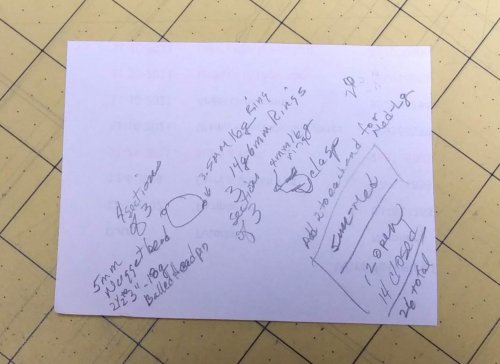 4 sections
of 3
5mm
Nugget bead
2½"-3"-18g
Balled Headpin
2.5mm 16g Ring
3 14g 6mm Rings
sections
of 3
4mm 16g
ring
clasp
Add 2 to each end for
Med-Lg
5mm-Med
12 open
14 closed
26 total